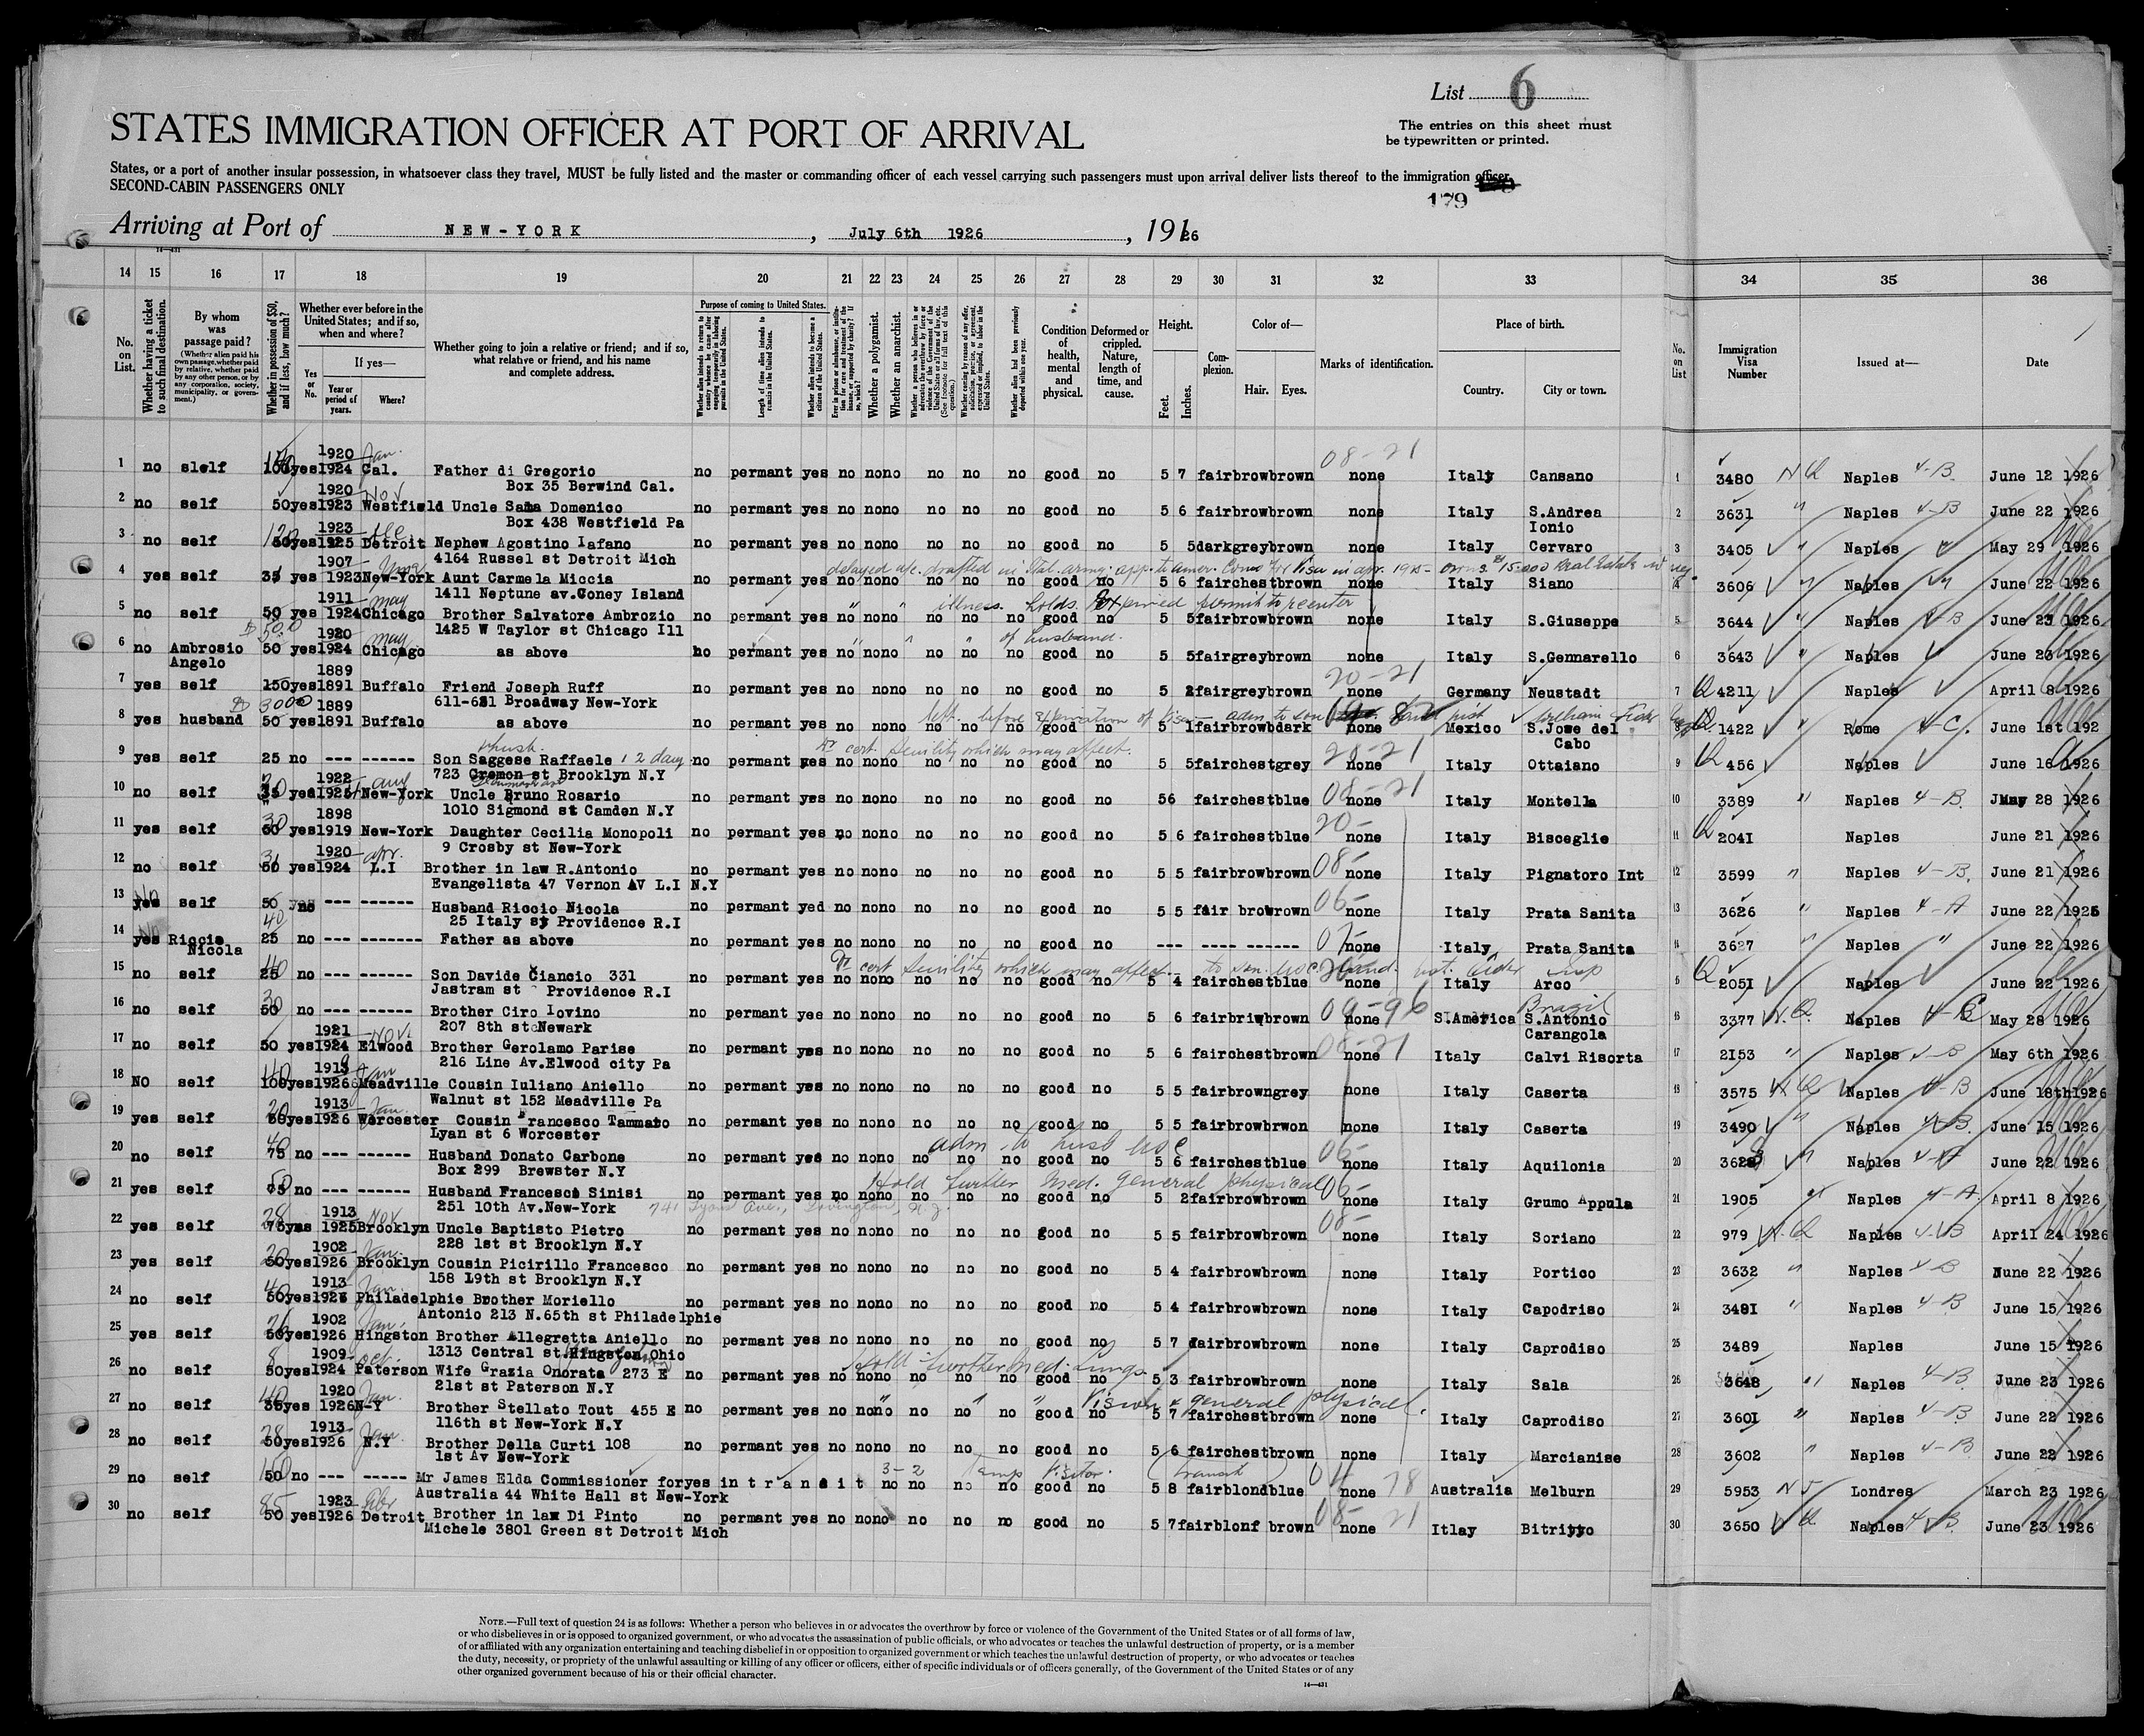 List 6
The entries on this sheet must
be typewritten or printed.
STATES IMMIGRATION OFFICER AT PORT OF ARRIVAL
States, or a port of another insular possession, in whatsoever class they travel, MUST be fully listed and the master or commanding officer of each vessel carrying such passengers must upon arrival deliver lists thereof to the immigration officer.
SECOND-CABIN PASSENGERS ONLY
179
Arriving at Port of NEW-YORK , July 6th 1926 , 19126
14—431
14 15 16 17 18 19 20 21 22 23 24 25 26 27 28 29 30 31 32 33 34 35 36
No. on List.
Whether having a ticket to such final destination.
By whom was passage paid?
(Whether alien paid his own passage, whether paid by relative, whether paid by any other person, or by any corporation, society, municipality, or government.)
Whether in possession of $50, and if less, how much?
Whether ever before in the United States; and if so, when and where?
If yes—
Yes or No.
Year or period of years.
Where?
Whether going to join a relative or friend; and if so, what relative or friend, and his name and complete address.
Purpose of coming to United States.
Whether alien intends to return to country whence he came after engaging temporarily in laboring pursuits in the United States.
Length of time alien intends to remain in the United States.
Whether alien intends to become a citizen of the United States.
Ever in prison or almshouse, or institution for care and treatment of the insane, or supported by charity? If so, which?
Whether a polygamist.
Whether an anarchist.
Whether coming by reason of any offer, solicitation, promise, or agreement, expressed or implied, to labor in the United States.
Whether alien had been previously deported within one year.
Condition of health, mental and physical.
Deformed or crippled. Nature, length of time, and cause.
Height.
Feet. Inches.
Complexion.
Color of—
Hair. Eyes.
Marks of identification.
Place of birth.
Country. City or town.
No. on List
Immigration Visa Number
Issued at—
Date
1 no slelf 100yes 1920 1924 Jan. Cal. Father di Gregorio no permant yes no nono no no no good no 5 7 fairbrowbrown 08-21 none Italy Cansano 1 3480 Naples 4-B June 12 1926
Box 35 Berwind Cal.
2 no self 50yes 1920 1923 Nov Westfield Uncle Sama Domenico no permant yes no nono no no no good no 5 6 fairbrowbrown none Italy S.Andrea Ionio 2 3631 " Naples 4-B June 22 1926
Box 438 Westfield Pa
3 no self yes 1923 1925 Detroit Nephew Agostino Iafano no permant yes no nono no no no good no 5 5darkgreybrown none Italy Cervaro 3 3405 " Naples " May 29 1926
4164 Russel st Detroit Mich
4 yes self 35 yes 1907 1923 New-York Aunt Carmela Miccia no permant yes no nono no no no good no 5 6 fairchestbrown none Italy Siano 4 3606 " Naples " June 22 1926
1411 Neptune av.Coney Island
5 no self 50 yes 1911 1924 may Chicago Brother Salvatore Ambrozio no permant yes no nono no no no good no 5 5fairbrowbrown none Italy S.Giuseppe 5 3644 " Naples June 23 1926
1425 W Taylor st Chicago Ill
illness. holds expired permit to reenter
6 no Ambrosio Angelo 50 yes 1920 1924 may Chicago as above no permant yes no nono no no no good no 5 5fairgreybrown none Italy S.Gennarello 6 3643 " Naples June 23 1926
of husband.
7 yes self 150yes 1889 1891 Buffalo Friend Joseph Ruff no permant yes no nono no no no good no 5 2fairgreybrown 20-21 none Germany Neustadt 7 4211 Naples April 8 1926
611-621 Broadway New-York
8 yes husband 50 yes 1889 1891 Buffalo as above no permant yes no nono no no no good no 5 1fairbrowbdark none Mexico S.Jowe del Cabo 8 1422 " Rome 4-C. June 1st 192
9 yes self 25 no --- ------ Son Saggese Raffaele no permant yes no nono no no no good no 5 5fairchestgrey 20-21 none Italy Ottaiano 9 456 Naples June 16 1926
723 Cremon st Brooklyn N.Y
cert senility which may affect.
10 no self yes 1922 1925 aug New-York Uncle Bruno Rosario no permant yes no nono no no no good no 56 fairchestblue 08-21 none Italy Montella 10 3389 " Naples 4-B. May 28 1926
1010 Sigmond st Camden N.Y
11 yes self yes 1898 1919 New-York Daughter Cecilia Monopoli no permant yes no nono no no no good no 5 6 fairchestblue 20- none Italy Bisceglie 11 2041 Naples June 21 1926
9 Crosby st New-York
12 no self yes 1920 1924 apr. L.I Brother in law R.Antonio no permant yes no nono no no no good no 5 5 fairbrowbrown 08- none Italy Pignatoro Int 12 3599 " Naples 4-B. June 21 1926
Evangelista 47 Vernon AV L.I N.Y
13 No self 50 no --- ------ Husband Riccio Nicola no permant yed no nono no no no good no 5 5 fair browrown 06- none Italy Prata Sanita 13 3626 " Naples 4-A June 22 1926
25 Italy st Providence R.I
14 yes Riccio Nicola 25 no --- ------- Father as above no permant yes no nono no no no good no --- ---- ------ 07 none Italy Prata Sanita 14 3627 " Naples " June 22 1926
15 no self 25 no --- ------ Son Davide Ciancio 331 no permant yes no nono no no no good no 5 4 fairchestblue none Italy Arco 15 2051 Naples June 22 1926
Jastram st Providence R.I
cert senility which may affect.
16 no self 50 no --- ------ Brother Ciro Iovino no permant yee no nono no no no good no 5 6 fairbriwbrown none 96 S.America Brazil S.Antonio Carangola 16 3377 Naples 4-C May 28 1926
207 8th st Newark
17 no self 50 yes 1921 1924 Nov. Elwood Brother Gerolamo Parise no permant yes no nono no no no good no 5 6 fairchestbrown 08-21 none Italy Calvi Risorta 17 2153 " Naples 4-B May 6th 1926
216 Line Av.Elwood city Pa
18 NO self 100yes 1926 Jan Meadville Cousin Iuliano Aniello no permant yes no nono no no no good no 5 5 fairbrowngrey none Italy Caserta 18 3575 Naples 4-B June 18th1926
Walnut st 152 Meadville Pa
19 yes self yes 1913 1926 Jan. Worcester Cousin Francesco Tammaro no permant yes no nono no no no good no 5 5 fairbrowbrwon none Italy Caserta 19 3490 " Naples 4-B. June 15 1926
Lyan st 6 Worcester
20 no self 75 no --- ------ Husband Donato Carbone no permant yes no nono no no no good no 5 6 fairchestblue 06- none Italy Aquilonia 20 Naples 4-A June 22 1926
Box 299 Brewster N.Y
21 yes self 75 no --- ------ Husband Francesco Sinisi no permant yes no nono no no no good no 5 2fairbrowbrown 06- none Italy Grumo Appula 21 1905 " Naples 4-A. April 8 1926
251 10th Av.New-York
Hold further med. general physical
22 yes self 75yes 1913 1925 Nov Brooklyn Uncle Baptisto Pietro no permant yes no nono no no no good no 5 5 fairbrowbrown 08- none Italy Soriano 22 979 Naples 4-B April 24 1926
228 1st st Brooklyn N.Y
23 yes self 50yes 1902 1926 Jan. Brooklyn Cousin Picirillo Francesco no permant yes no nono no no no good no 5 4 fairbrowbrown none Italy Portico 23 3632 " Naples 4-B June 22 1926
158 19th st Brooklyn N.Y
24 no self 50yes 1913 1926 Jan. Philadelphie Brother Moriello no permant yes no nono no no no good no 5 4 fairbrowbrown none Italy Capodriso 24 3481 " Naples 4-B June 15 1926
Antonio 213 N.65th st Philadelphie
25 yes self 50yes 1902 1926 Jan. Hingston Brother Allegretta Aniello no permant yes no nono no no no good no 5 7 fairbrowbrown none Italy Caprodiso 25 3489 Naples June 15 1926
1313 Central st Hingston Ohio
26 no self 50yes 1909 1924 oct. Paterson Wife Grazia Onorata 273 E no permant yes no nono no no no good no 5 3 fairbrowbrown none Italy Sala 26 3648 " Naples 4-B. June 23 1926
21st st Paterson N.Y
Hold further med. Lungs
27 no self 35yes 1920 1926 Jan. N-Y Brother Stellato Tout 455 E no permant yes no nono no no no good no 5 7 fairchestbrown none Italy Caprodiso 27 3601 " Naples 4-B June 22 1926
116th st New-York N.Y
Vision & general physical.
28 no self 50yes 1913 1926 Jan. N.Y Brother Della Curti 108 no permant yes no nono no no no good no 5 6 fairchestbrown none Italy Marcianise 28 3602 " Naples 4-B June 22 1926
1st Av New-York
29 no self 50 no --- ----- Mr James Elda Commissioner foryes in transit no no no no good no 5 8 fairblondblue none 78 Australia Melburn 29 5953 Londres March 23 1926
Australia 44 White Hall st New-York
3-2 Temp Visitor. (transit)
30 no self 50 yes 1923 1926 Detroit Brother in law Di Pinto no permant yes no nono no no no good no 5 7fairblonf brown 08- 21 none Itlay Bitritto 30 3650 Naples 4-B. June 23 1926
Michele 3801 Green st Detroit Mich
NOTE.—Full text of question 24 is as follows: Whether a person who believes in or advocates the overthrow by force or violence of the Government of the United States or of all forms of law,
or who disbelieves in or is opposed to organized government, or who advocates the assassination of public officials, or who advocates or teaches the unlawful destruction of property, or is a member
of or affiliated with any organization entertaining and teaching disbelief in or opposition to organized government or which teaches the unlawful destruction of property, or who advocates or teaches
the duty, necessity, or propriety of the unlawful assaulting or killing of any officer or officers, either of specific individuals or of officers generally, of the Government of the United States or of any
other organized government because of his or their official character.
14—431